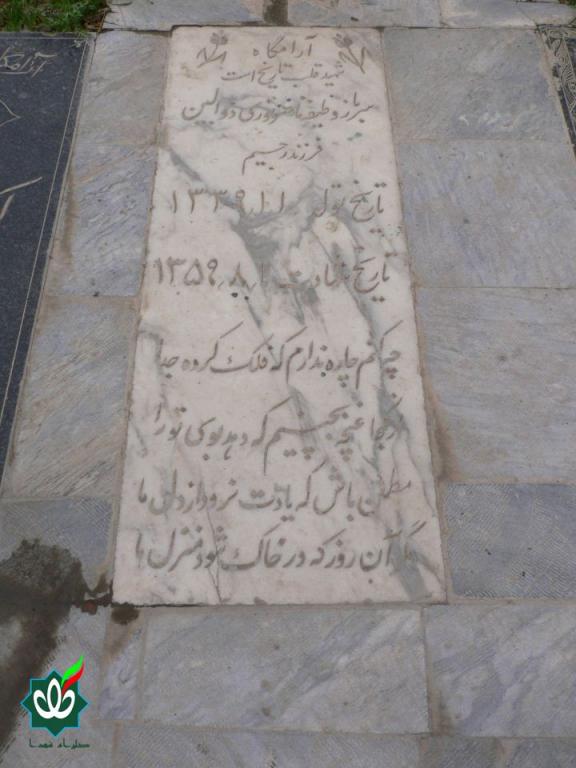 آرامگاه
شهید قلب تاریخ است
سرباز وظیفه منوچهری ذوالین
فرزند رحیم
تاریخ تولد ۱۳۳۹٫۱٫۱
تاریخ شهادت ۱۳۵۹٫۸٫۱
چه کنم چاره ندارم که فلک کرده جدا
از کجا غنچه بچینم که دهد بوی تو را
مطمئن باش که یادت نرود از دل ما
مگر آن روز که در خاک شود منزل ما